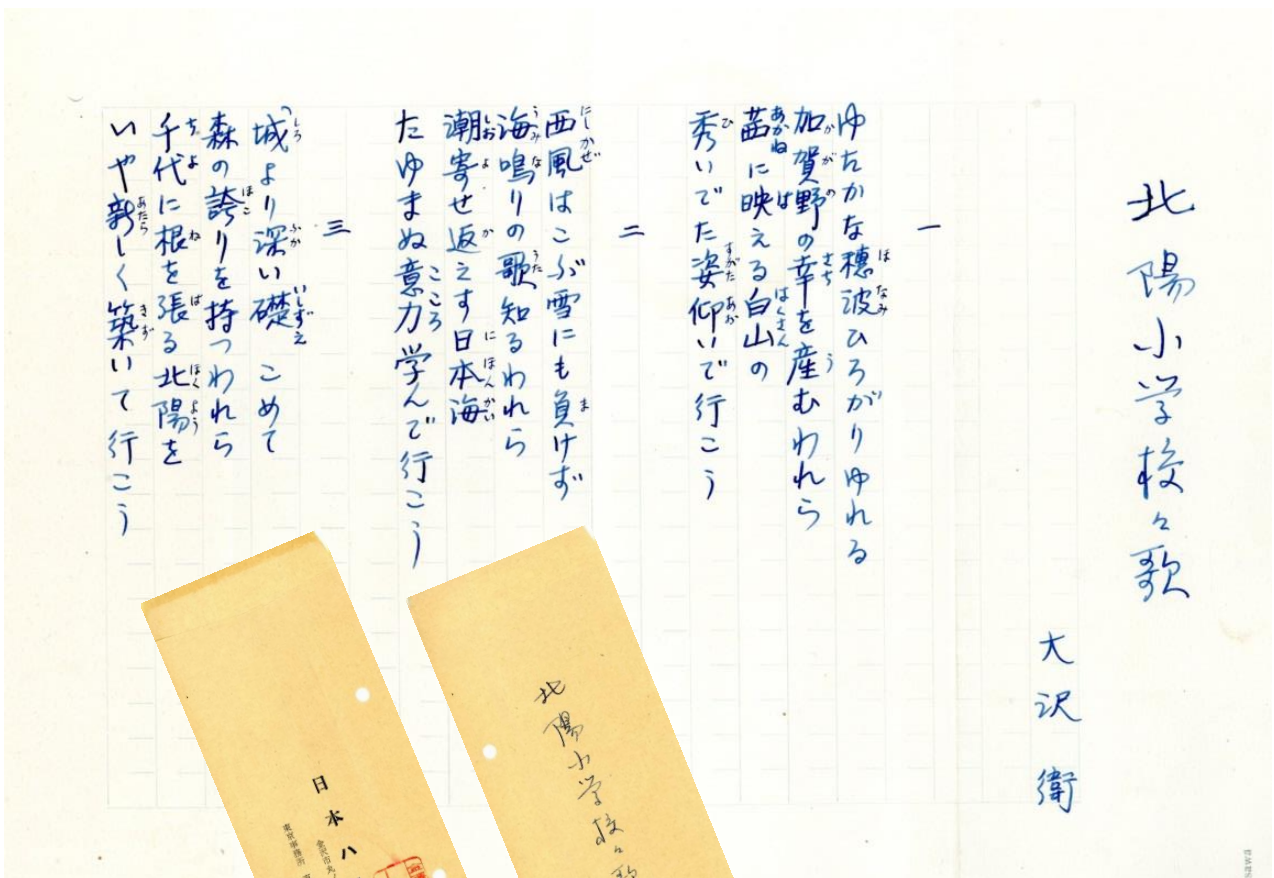 北陽小学校々歌
大沢衛
一
ゆたかな穂波ひろがりゆれる
加賀野の幸を産むわれら
茜に映える白山の
秀いでた姿仰いで行こう
二
西風はこぶ雪にも負けず
海鳴りの歌知るわれら
潮寄せ返えす日本海
たゆまぬ意力学んで行こう
三
城より深い礎こめて
森の誇りを持つわれら
千代に根を張る北陽を
いや新しく築いて行こう
北陽小学校々歌
日本ハ
金沢市丸ノ
東京事務所